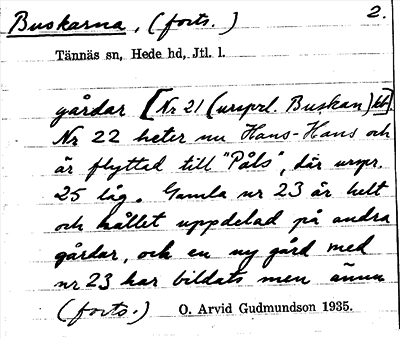 Buskarna, (forts.) 2.
Tännäs sn, Hede hd, Jtl. l.
gårdar [Nr 21 (urspr. Buskan) kb]
Nr 22 heter nu Hans-Hans och
är flyttad till "Påls", där urspr.
25 låg. Gamla nr 23 är helt
och hållet uppdelad på andra
gårdar, och en ny gård med
nr 23 har bildats men ännu
(forts.) O. Arvid Gudmundson 1935.